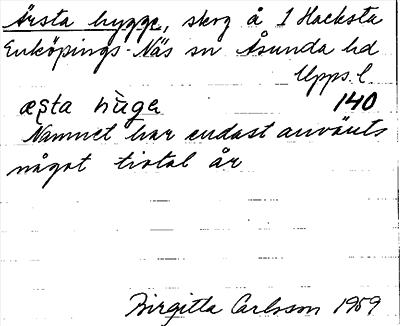 Årsta hygge, skog å 1 Hacksta
Enköpings-Näs sn Åsunda hd
Upps. l.
æsta hùge 140
Namnet har endast använts
något tiotal år
Birgitta Carlsson 1959